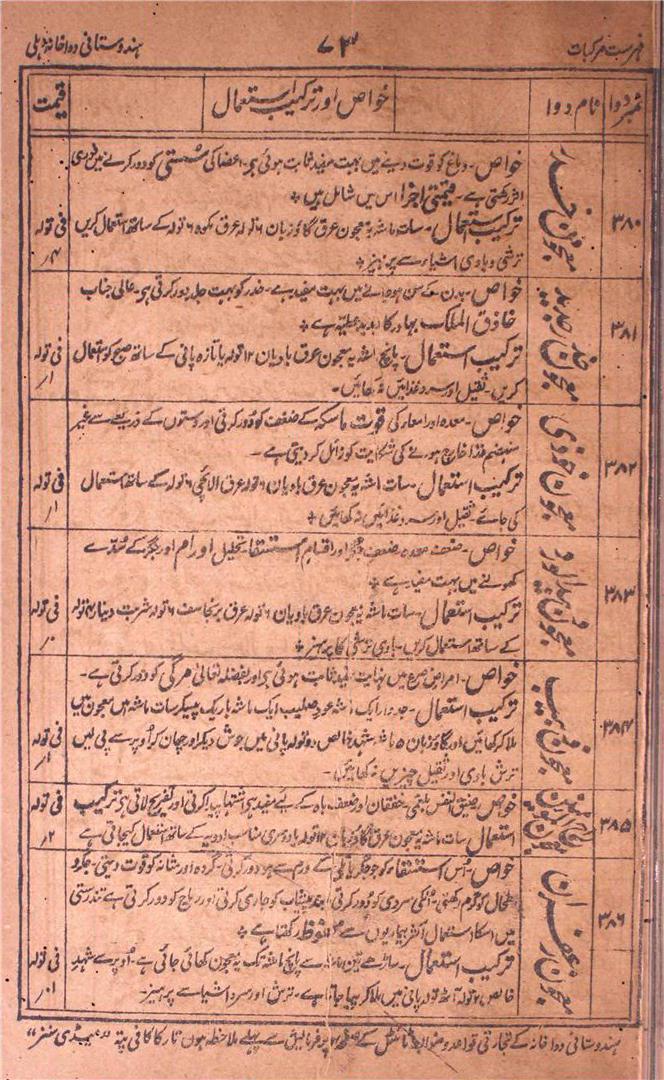 فہرست مرکبات ۷۳ ہندوستانی دواخانہ دہلی
نمبر دوا نام دوا خواص اور ترکیب استعمال قیمت
۳۸۰ معجون خدر
خواص۔ دماغ کو قوت دینے میں بہت مفید ثابت ہوئی ہے۔ اعضا کی سستی کو دور کرنے میں فوری
اثر رکھتی ہے۔ قیمتی اجزا اس میں شامل ہیں ٭
ترکیب استعمال۔ سات ماشہ یہ معجون عرق گاؤزبان ۶ تولہ عرق مکوہ ۶ تولہ کے ساتھ استعمال کریں
ترشی و بادی اشیاء سے پرہیز ٭
فی تولہ
۳۸۱ معجون خدر جدید
خواص۔ بدن کے سن ہو جانے میں بہت مفید ہے۔ خدر کو بہت جلد دور کرتی ہے۔ عالی جناب
حاذق الملک بہادر کا جدید عطیہ ہے ٭
ترکیب استعمال۔ پانچ ماشہ یہ معجون عرق بادیان ۱۲ تولہ یا تازہ پانی کے ساتھ صبح کو استعمال
کریں۔ ثقیل اور سرد غذائیں نہ کھائیں۔
فی تولہ ۱ر
۳۸۲ معجون خوزی
خواص۔ معدہ اور امعاء کی قوت ماسکہ کے ضعف کو دور کرتی اور دستوں کے ذریعے سے غیر
منہضم غذا خارج ہونے کی شکایت کو زائل کر دیتی ہے۔
ترکیب استعمال۔ سات ماشہ یہ معجون عرق بادیان ۶ تولہ عرق الائچی ۶ تولہ کے ساتھ استعمال
کی جائے۔ ثقیل اور سرد غذائیں نہ کھائیں ٭
فی تولہ ۱ر
۳۸۳ معجون دبیدالورد
خواص۔ ضعف معدہ ضعف جگر اور اقسام استسقا۔ تحلیل اورام اور جگر کے سُدّے
کھولنے میں بہت مفید ہے ٭
ترکیب استعمال۔ سات ماشہ یہ معجون عرق بادیان ۶ تولہ عرق برنجاسف ۶ تولہ شربت دینار ۴ تولہ
کے ساتھ استعمال کریں۔ بادی ترشی کا پرہیز ٭
فی تولہ
۳۸۴ معجون ذبیب
خواص۔ امراض صرع میں نہایت مفید ثابت ہوئی ہے اور بفضلہ تعالیٰ مرگی کو دور کرتی ہے۔
ترکیب استعمال۔ جدوار ایک ماشہ عود صلیب ایک ماشہ باریک پیسکر سات ماشہ اس معجون میں
ملا کر کھائیں اور گاؤزبان ۵ ماشہ شہد خالص دو تولہ پانی میں جوش دیکر اور چھان کر اوپر سے پی لیں
ترش بادی اور ثقیل چیزیں نہ کھائیں۔
فی تولہ ۱ر
۳۸۵ معجون
خواص۔ ضیق النفس بلغمی۔ خفقان اور ضعف باہ کے لیے مفید ہے اشتہا پیدا کرتی اور تفریح لاتی ہے ترکیب
استعمال سات ماشہ یہ معجون عرق گاؤزبان ۱۲ تولہ یا دوسری مناسب ادویہ کے ساتھ استعمال کیجاتی ہے
فی تولہ ۲ر
۳۸۶ معجون زعفران
خواص۔ اُس استسقاء کو جو جگر یا تلی کے ورم سے ہو دور کرتی۔ گردہ اور مثانہ کو قوت دیتی۔ جگر و
طحال کو گرم رکھتی۔ انکی سردی کو دور کرتی۔ پیشاب کو جاری کرتی اور ریاح کو دور کرتی ہے تندرستی
میں اسکا استعمال اکثر بیماریوں سے محفوظ رکھتا ہے ٭
ترکیب استعمال۔ ساڑھے تین ماشہ سے پانچ ماشہ تک یہ معجون کھائی جاتی ہے۔ اوپر سے شہد
خالص ۲ تولہ آٹھ تولہ پانی میں ملا کر پیا جاتا ہے۔ ترش اور سرد اشیا سے پرہیز۔
فی تولہ ۱۰ر
ہندوستانی دواخانہ کے تجارتی قواعد و ضوابط ٹائٹل کے صفحہ ۲ پر فرمائش سے پہلے ملاحظہ ہوں تار کا کافی پتہ "میڈی سنز"